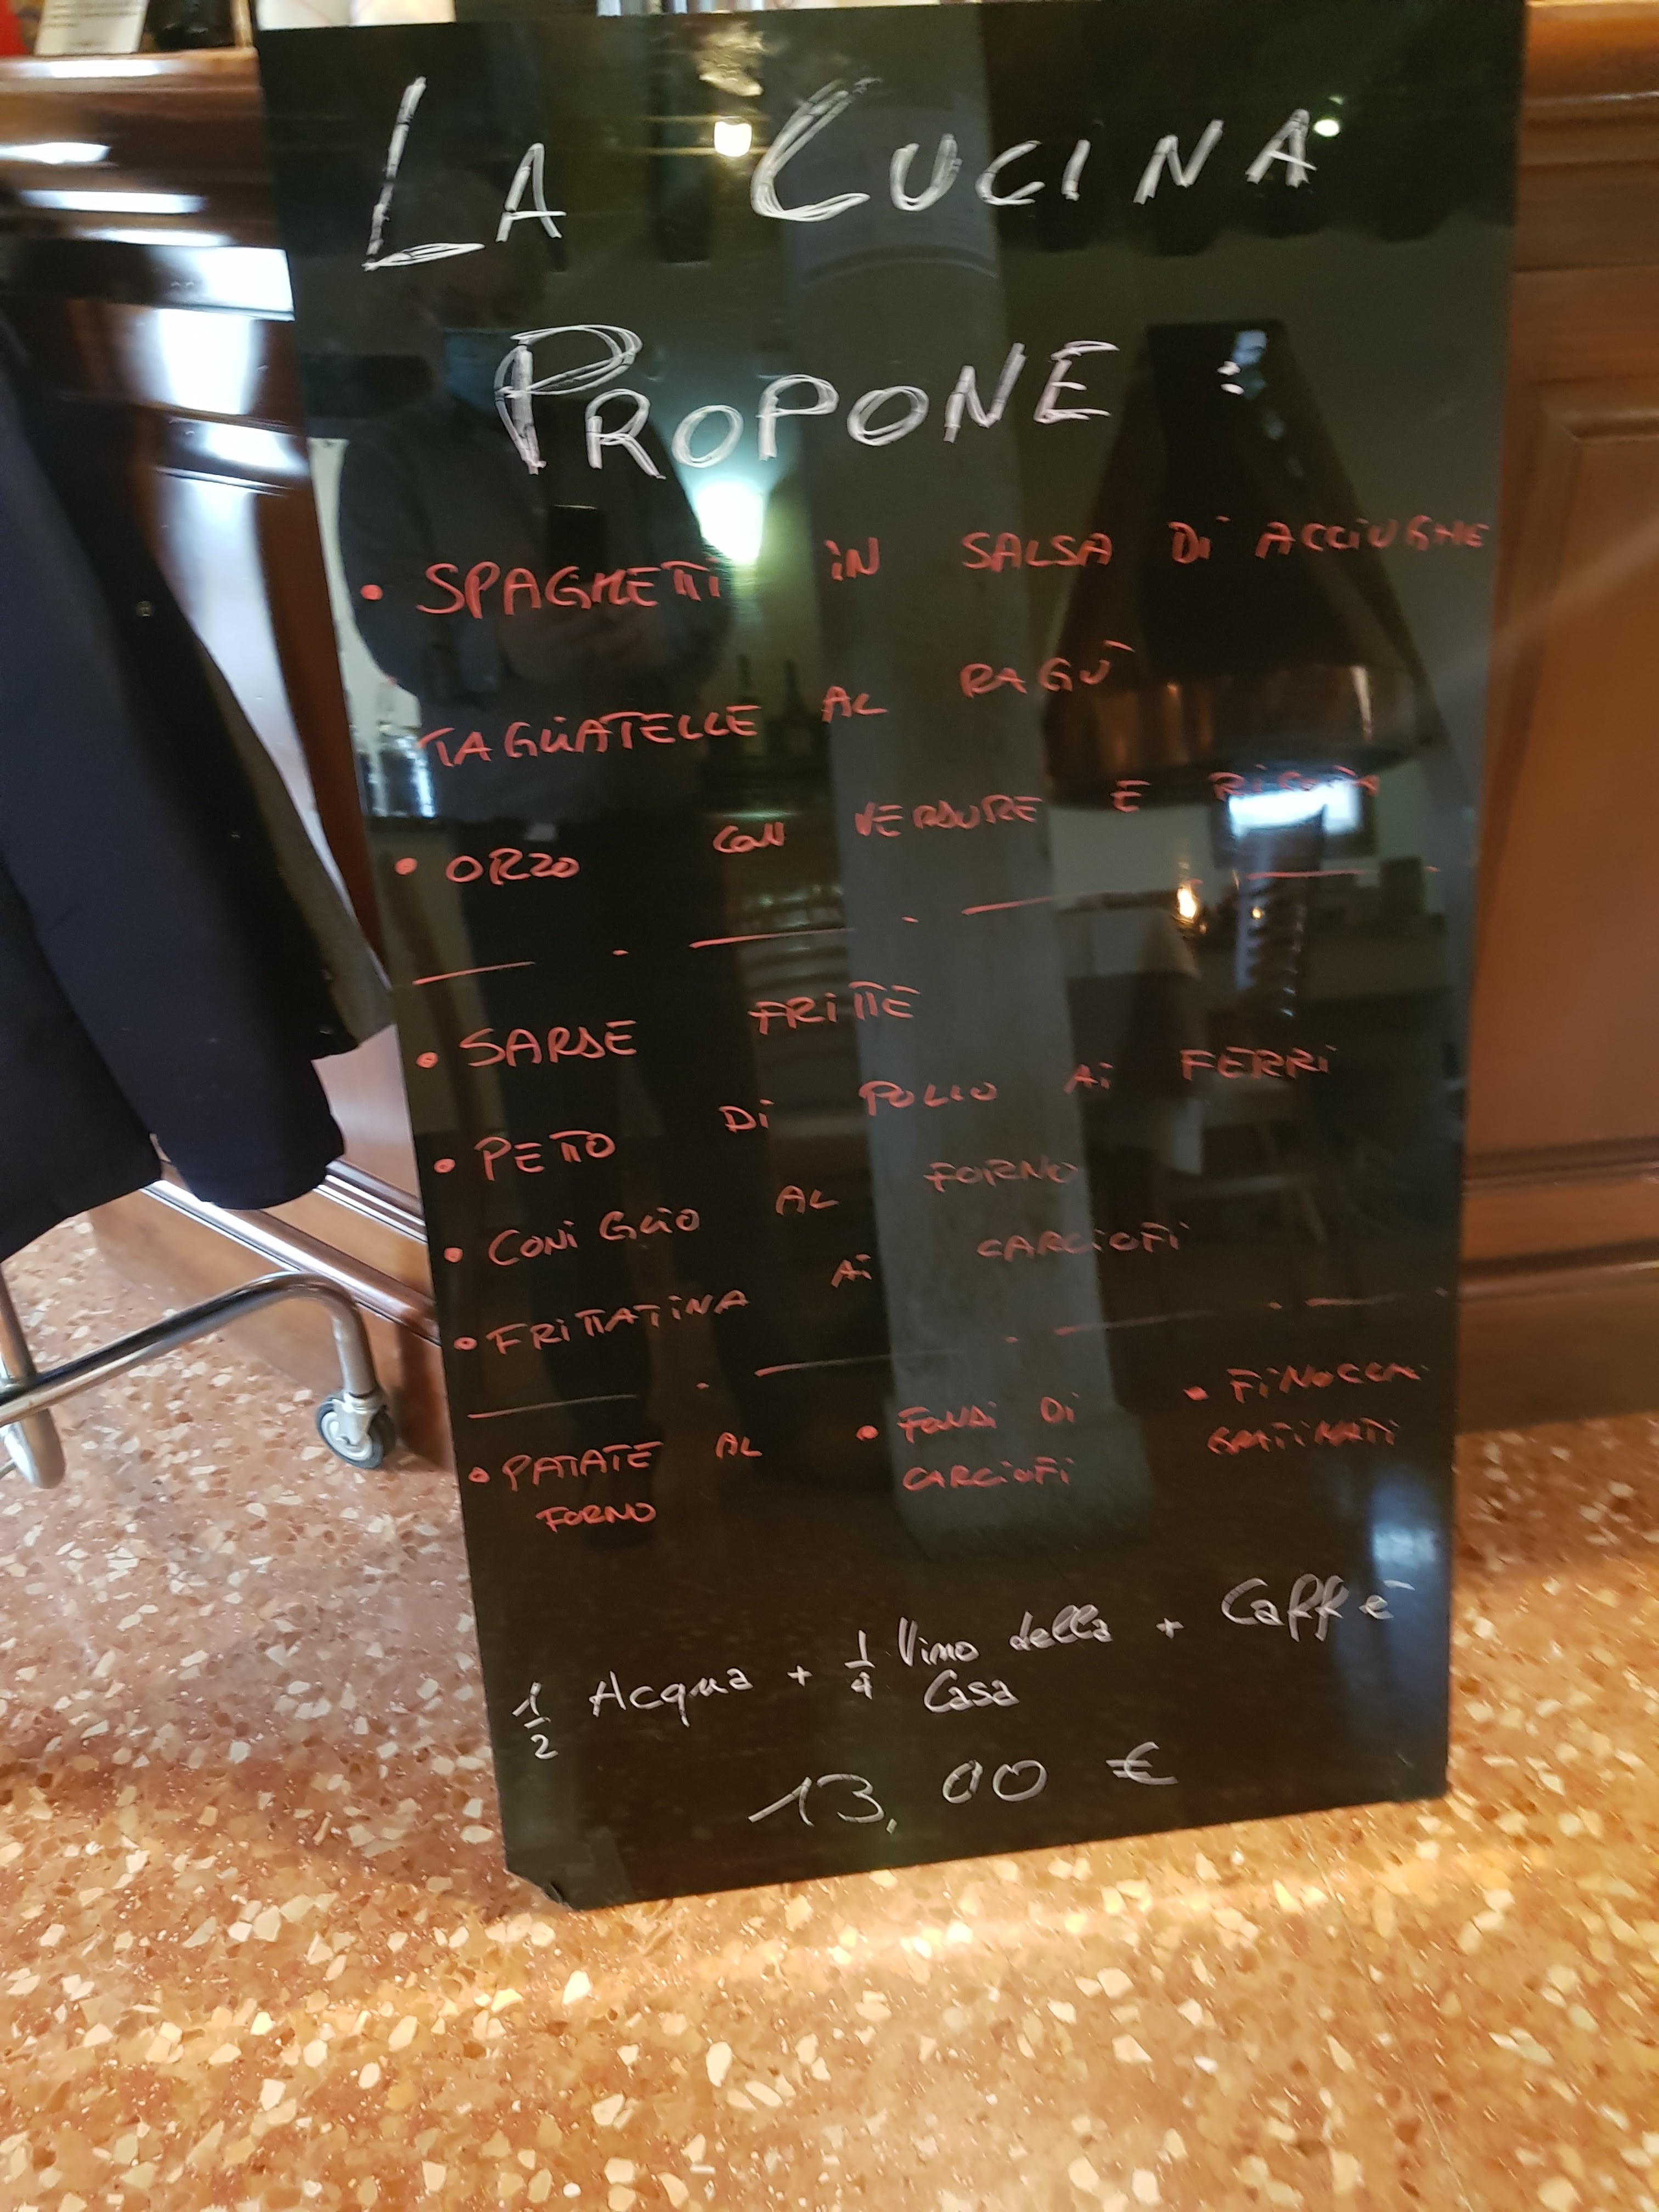 LA CUCINA
PROPONE :
• SPAGHETTI IN SALSA DI ACCIUGHE
TAGLIATELLE AL RAGÙ
• ORZO CON VERDURE E
• SARDE FRITTE
• PETTO DI POLLO AI FERRI
• CONIGLIO AL FORNO
• FRITTATINA AI CARCIOFI
• PATATE AL • FONDI DI • FINOCCHI
FORNO CARCIOFI GRATINATI
1/2 Acqua + 1/4 Vino della + Caffè
Casa
13,00 €